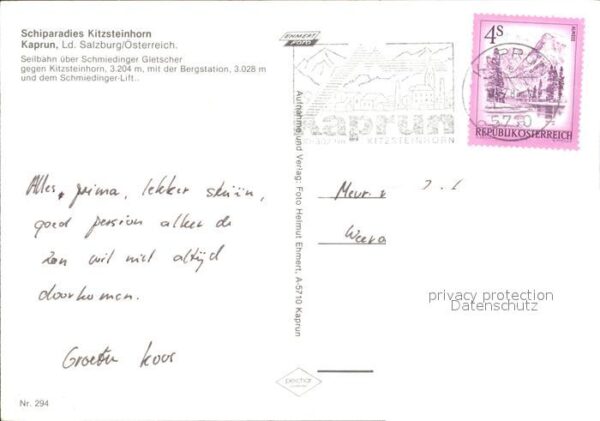 Schiparadies Kitzsteinhorn
Kaprun, Ld. Salzburg/Österreich.
Seilbahn über Schmiedinger Gletscher
gegen Kitzsteinhorn, 3.204 m, mit der Bergstation, 3.028 m
und dem Schmiedinger-Lift..
EHMERT
FOTO
4S
REPUBLIK ÖSTERREICH
5710
kaprun
KITZSTEINHORN
Aufnahme und Verlag: Foto Helmut Ehmert, A-5710 Kaprun
Alles prima, lekker skiën,
goed pension alleen de
zon wil niet altijd
doorkomen.
Groeten Koos
privacy protection
Datenschutz
pechar
Nr. 294